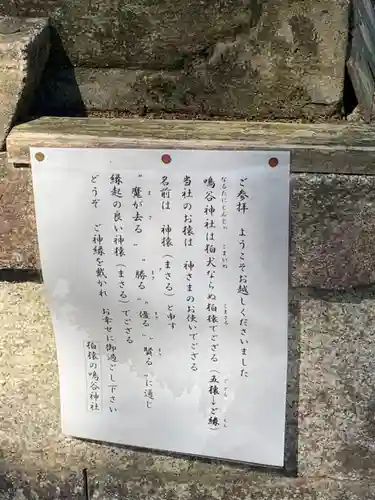 ご参拝 ようこそお越しくださいました
なるたにじんじゃ こまいぬ こまざる ごえん えん
鳴谷神社は狛犬ならぬ狛猿でござる（五猿→ご縁）
当社のお猿は 神さまのお使いでござる
名前は 神猿（まさる）と申す
ま さ まさ まさ まさ
“魔が去る” “勝る” “優る” “賢る”に通じ
縁起の良い神猿（まさる）でござる
どうぞ ご神縁を戴かれ お幸せに御過ごし下さい
狛猿の鳴谷神社